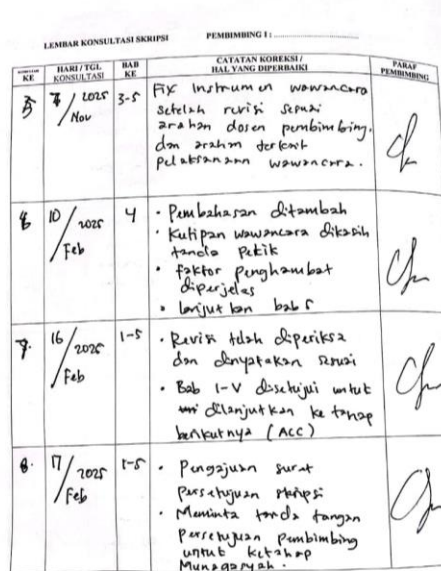 LEMBAR KONSULTASI SKRIPSI PEMBIMBING I :
KE HARI / TGL KONSULTASI BAB KE CATATAN KOREKSI / HAL YANG DIPERBAIKI PARAF PEMBIMBING
7/Nov 2025 3-5 Fix Instrumen wawancara
setelah revisi sesuai
arahan dosen pembimbing.
dan arahan terkait
pelaksanaan wawancara.
10/Feb 2025 4 • Pembahasan ditambah
• Kutipan wawancara dikasih
tanda petik
• faktor penghambat
diperjelas
• lanjutkan bab 5
7. 16/Feb 2025 1-5 • Revisi telah diperiksa
dan dinyatakan sesuai
• Bab I-V disetujui untuk
dilanjutkan ke tahap
berikutnya (ACC)
8. 17/Feb 2025 1-5 • Pengajuan surat
persetujuan skripsi
• Meminta tanda tangan
Persetujuan pembimbing
untuk ketahap
Munaqasyah.